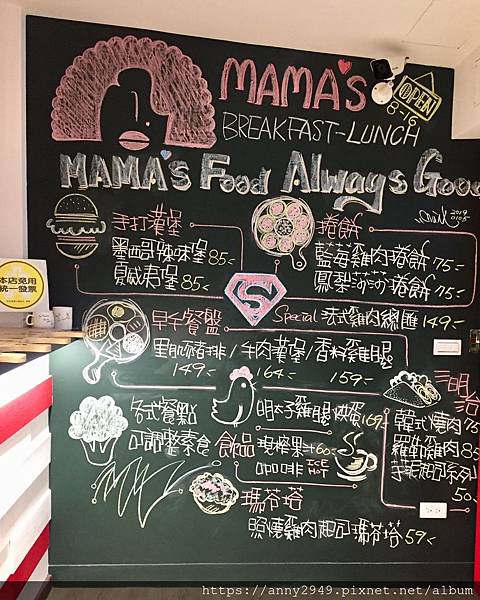 MAMA's
OPEN
8-16
BREAKFAST-LUNCH
MAMA's Food Always Good
2019
0105
手打漢堡
墨西哥辣味堡 85
夏威夷堡 85
捲餅
藍莓雞肉捲餅 75
鳳梨莎莎捲餅 75
S
本店免用
統一發票
早午餐盤
Special 法式雞肉總匯 149
里肌豬排/牛肉漢堡/香料雞腿
149 164 159
三明治
各式餐點
可調整素食
明太子雞腿烘蛋 169
飲品 現榨果汁 60
咖啡 ICE HOT
韓式燒肉 75
羅勒雞肉 85
起司系列
50
瑪芬塔
照燒雞肉起司瑪芬塔 59
https://anny2949.pixnet.net/album